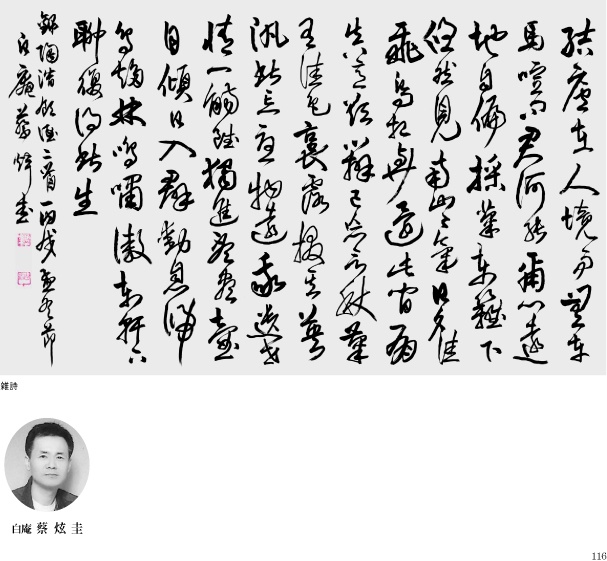 結廬在人境而無車
馬喧問君何能爾心遠
地自偏採菊東籬下
悠然見南山山氣日夕佳
飛鳥相與還此間有
真意欲辯已忘言秋菊
有佳色裛露掇其英
汎此忘憂物遠我遺世
情一觴雖獨進杯盡壺
自傾日入群動息歸
鳥趨林鳴嘯傲東軒下
聊復得此生
錄陶潛飲酒二首 丙戌孟冬節
白庵 蔡炫圭
雜詩
白庵 蔡炫圭
116